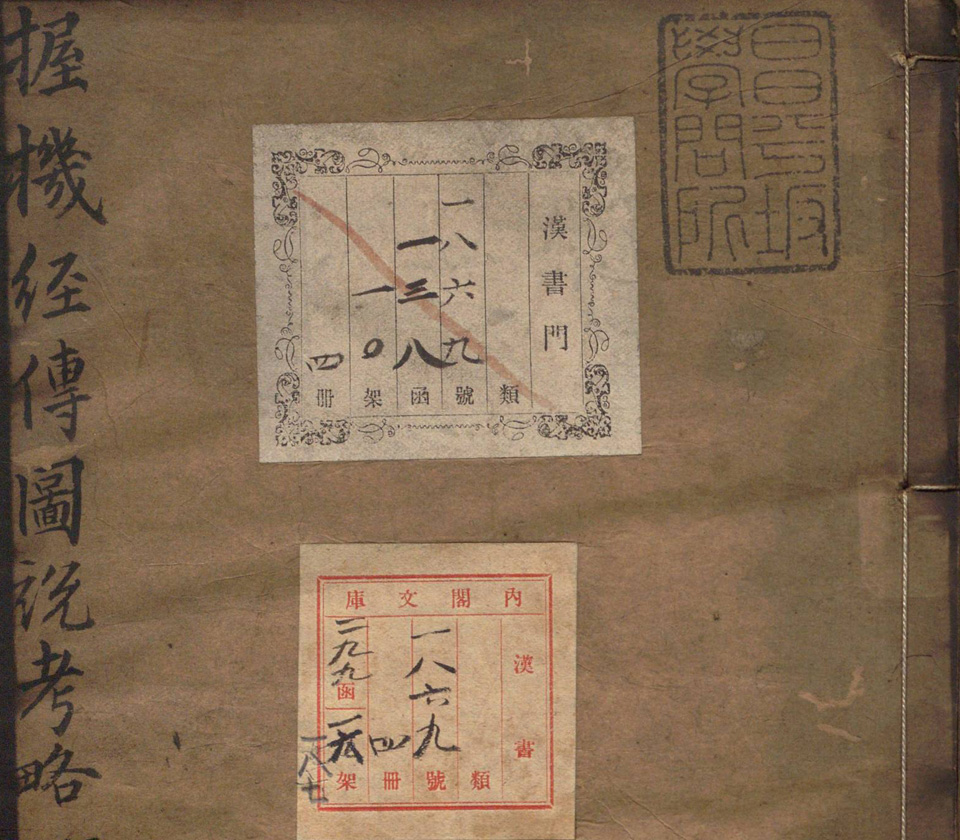 昌平坂
學問所
漢書門
類
一八六九號
一三八函
一〇架
四冊
內閣文庫
漢書
類
一八六九號
四冊
二九九函
架
一八七
握機経傳圖説考略